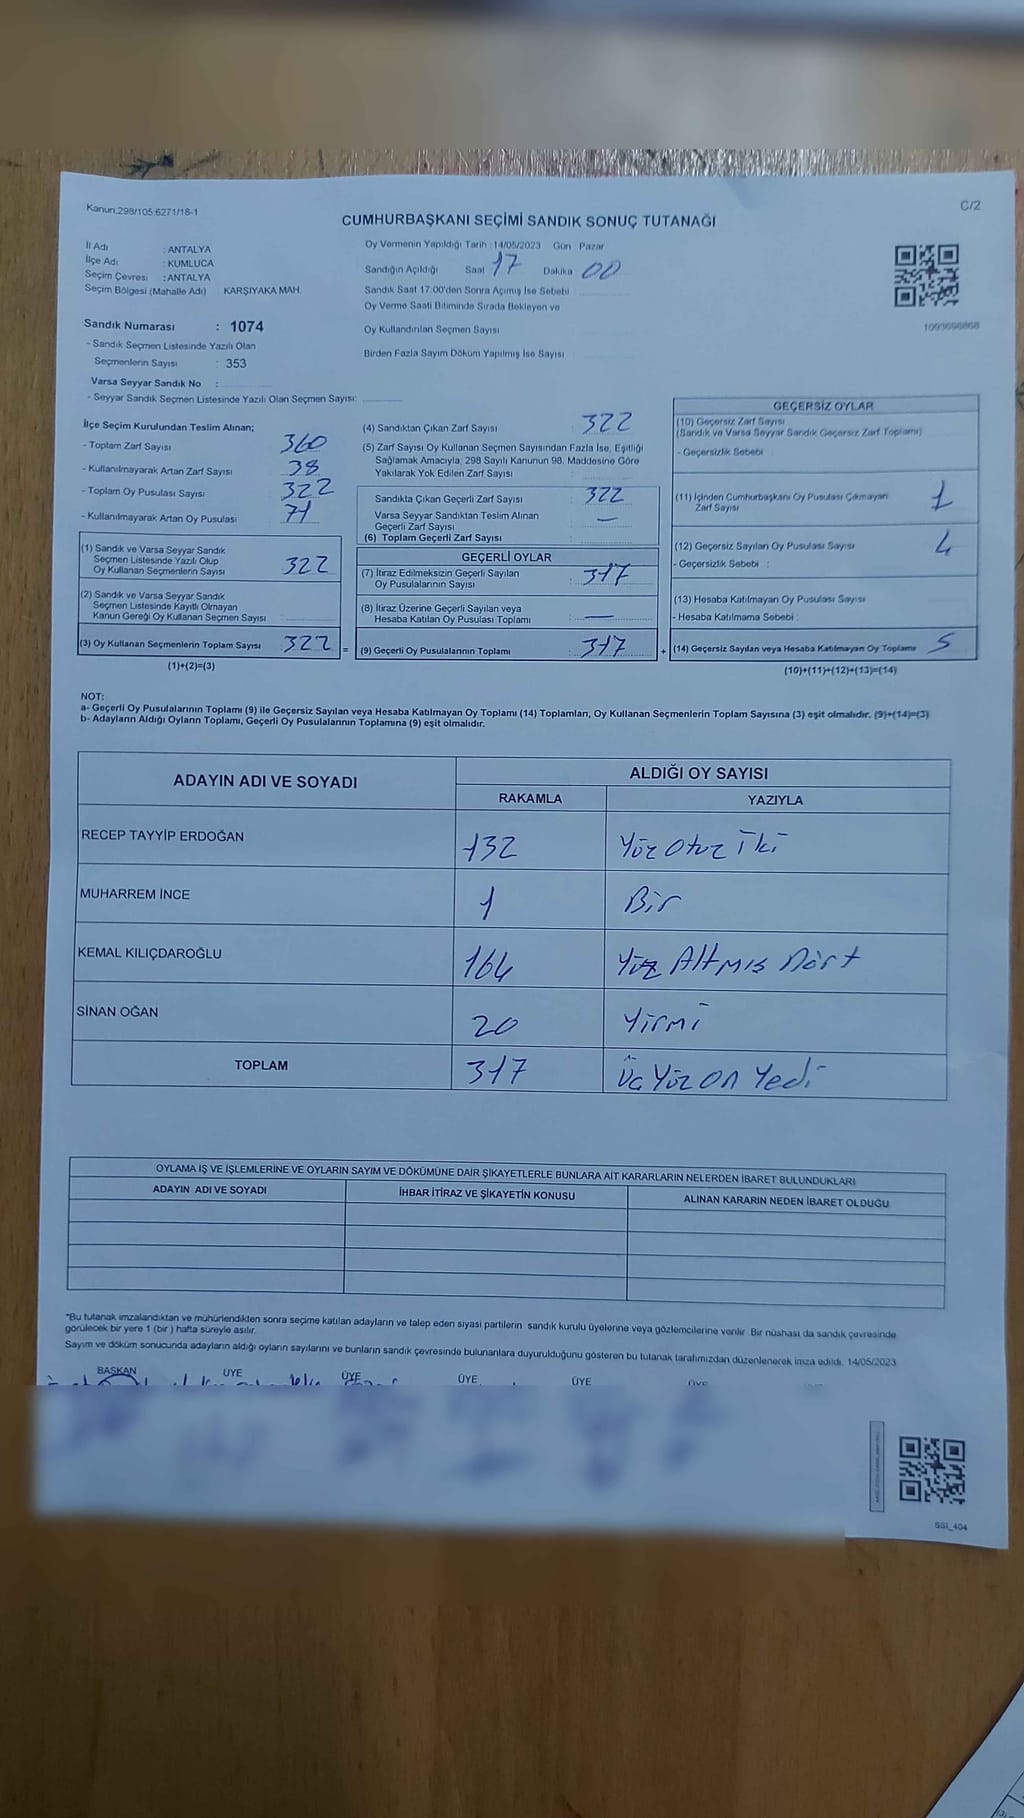 Kanun:298/105 6271/18-1
C/2
CUMHURBAŞKANI SEÇİMİ SANDIK SONUÇ TUTANAĞI
İl Adı : ANTALYA
İlçe Adı : KUMLUCA
Seçim Çevresi : ANTALYA
Seçim Bölgesi (Mahalle Adı) KARŞIYAKA MAH.
Oy Vermenin Yapıldığı Tarih : 14/05/2023 Gün : Pazar
Sandığın Açıldığı Saat 17 Dakika 00
Sandık Saat 17:00'den Sonra Açımış İse Sebebi
Oy Verme Saati Bitiminde Sırada Bekleyen ve
Oy Kullandırılan Seçmen Sayısı
Birden Fazla Sayım Döküm Yapılmış İse Sayısı
Sandık Numarası : 1074
- Sandık Seçmen Listesinde Yazılı Olan
Seçmenlerin Sayısı : 353
Varsa Seyyar Sandık No :
- Seyyar Sandık Seçmen Listesinde Yazılı Olan Seçmen Sayısı:
İlçe Seçim Kurulundan Teslim Alınan;
- Toplam Zarf Sayısı 360
- Kullanılmayarak Artan Zarf Sayısı 38
- Toplam Oy Pusulası Sayısı 322
- Kullanılmayarak Artan Oy Pusulası 71
(1) Sandık ve Varsa Seyyar Sandık
Seçmen Listesinde Yazılı Olup
Oy Kullanan Seçmenlerin Sayısı 322
(2) Sandık ve Varsa Seyyar Sandık
Seçmen Listesinde Kayıtlı Olmayan
Kanun Gereği Oy Kullanan Seçmen Sayısı
(3) Oy Kullanan Seçmenlerin Toplam Sayısı 322 =
(1)+(2)=(3)
(4) Sandıktan Çıkan Zarf Sayısı 322
(5) Zarf Sayısı Oy Kullanan Seçmen Sayısından Fazla İse, Eşitliği
Sağlamak Amacıyla; 298 Sayılı Kanunun 98. Maddesine Göre
Yakılarak Yok Edilen Zarf Sayısı
Sandıkta Çıkan Geçerli Zarf Sayısı 322
Varsa Seyyar Sandıktan Teslim Alınan
Geçerli Zarf Sayısı —
(6) Toplam Geçerli Zarf Sayısı
GEÇERLİ OYLAR
(7) İtiraz Edilmeksizin Geçerli Sayılan
Oy Pusulalarının Sayısı 317
(8) İtiraz Üzerine Geçerli Sayılan veya
Hesaba Katılan Oy Pusulası Toplamı —
(9) Geçerli Oy Pusulalarının Toplamı 317 +
GEÇERSİZ OYLAR
(10) Geçersiz Zarf Sayısı
(Sandık ve Varsa Seyyar Sandık Geçersiz Zarf Toplamı)
- Geçersizlik Sebebi
(11) İçinden Cumhurbaşkanı Oy Pusulası Çıkmayan
Zarf Sayısı 1
(12) Geçersiz Sayılan Oy Pusulası Sayısı 4
- Geçersizlik Sebebi :
(13) Hesaba Katılmayan Oy Pusulası Sayısı
- Hesaba Katılmama Sebebi :
(14) Geçersiz Sayılan veya Hesaba Katılmayan Oy Toplamı 5
(10)+(11)+(12)+(13)=(14)
NOT:
a- Geçerli Oy Pusulalarının Toplamı (9) ile Geçersiz Sayılan veya Hesaba Katılmayan Oy Toplamı (14) Toplamları, Oy Kullanan Seçmenlerin Toplam Sayısına (3) eşit olmalıdır. (9)+(14)=(3)
b- Adayların Aldığı Oyların Toplamı, Geçerli Oy Pusulalarının Toplamına (9) eşit olmalıdır.
ADAYIN ADI VE SOYADI
ALDIĞI OY SAYISI
RAKAMLA YAZIYLA
RECEP TAYYİP ERDOĞAN 132 Yüz Otuz İki
MUHARREM İNCE 1 Bir
KEMAL KILIÇDAROĞLU 164 Yüz Altmış Dört
SİNAN OĞAN 20 Yirmi
TOPLAM 317 Üç Yüz On Yedi
OYLAMA İŞ VE İŞLEMLERİNE VE OYLARIN SAYIM VE DÖKÜMÜNE DAİR ŞİKAYETLERLE BUNLARA AİT KARARLARIN NELERDEN İBARET BULUNDUKLARI
ADAYIN ADI VE SOYADI İHBAR İTİRAZ VE ŞİKAYETİN KONUSU ALINAN KARARIN NEDEN İBARET OLDUĞU
"Bu tutanak imzalandıktan ve mühürlendikten sonra seçime katılan adayların ve talep eden siyasi partilerin sandık kurulu üyelerine veya gözlemcilerine verilir. Bir nüshası da sandık çevresinde
görülecek bir yere 1 (bir ) hafta süreyle asılır.
Sayım ve döküm sonucunda adayların aldığı oyların sayılarını ve bunların sandık çevresinde bulunanlara duyurulduğunu gösteren bu tutanak tarafımızdan düzenlenerek imza edildi. 14/05/2023
BAŞKAN ÜYE ÜYE ÜYE ÜYE ÜYE
SSI_404